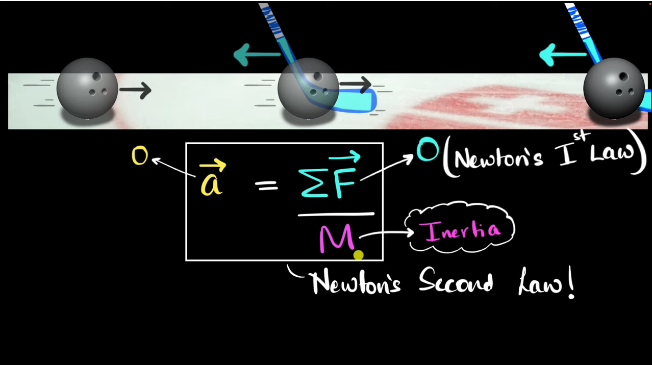 0
a = ΣF / M
0 (Newton's Iˢᵗ Law)
Inertia
Newton's Second Law!